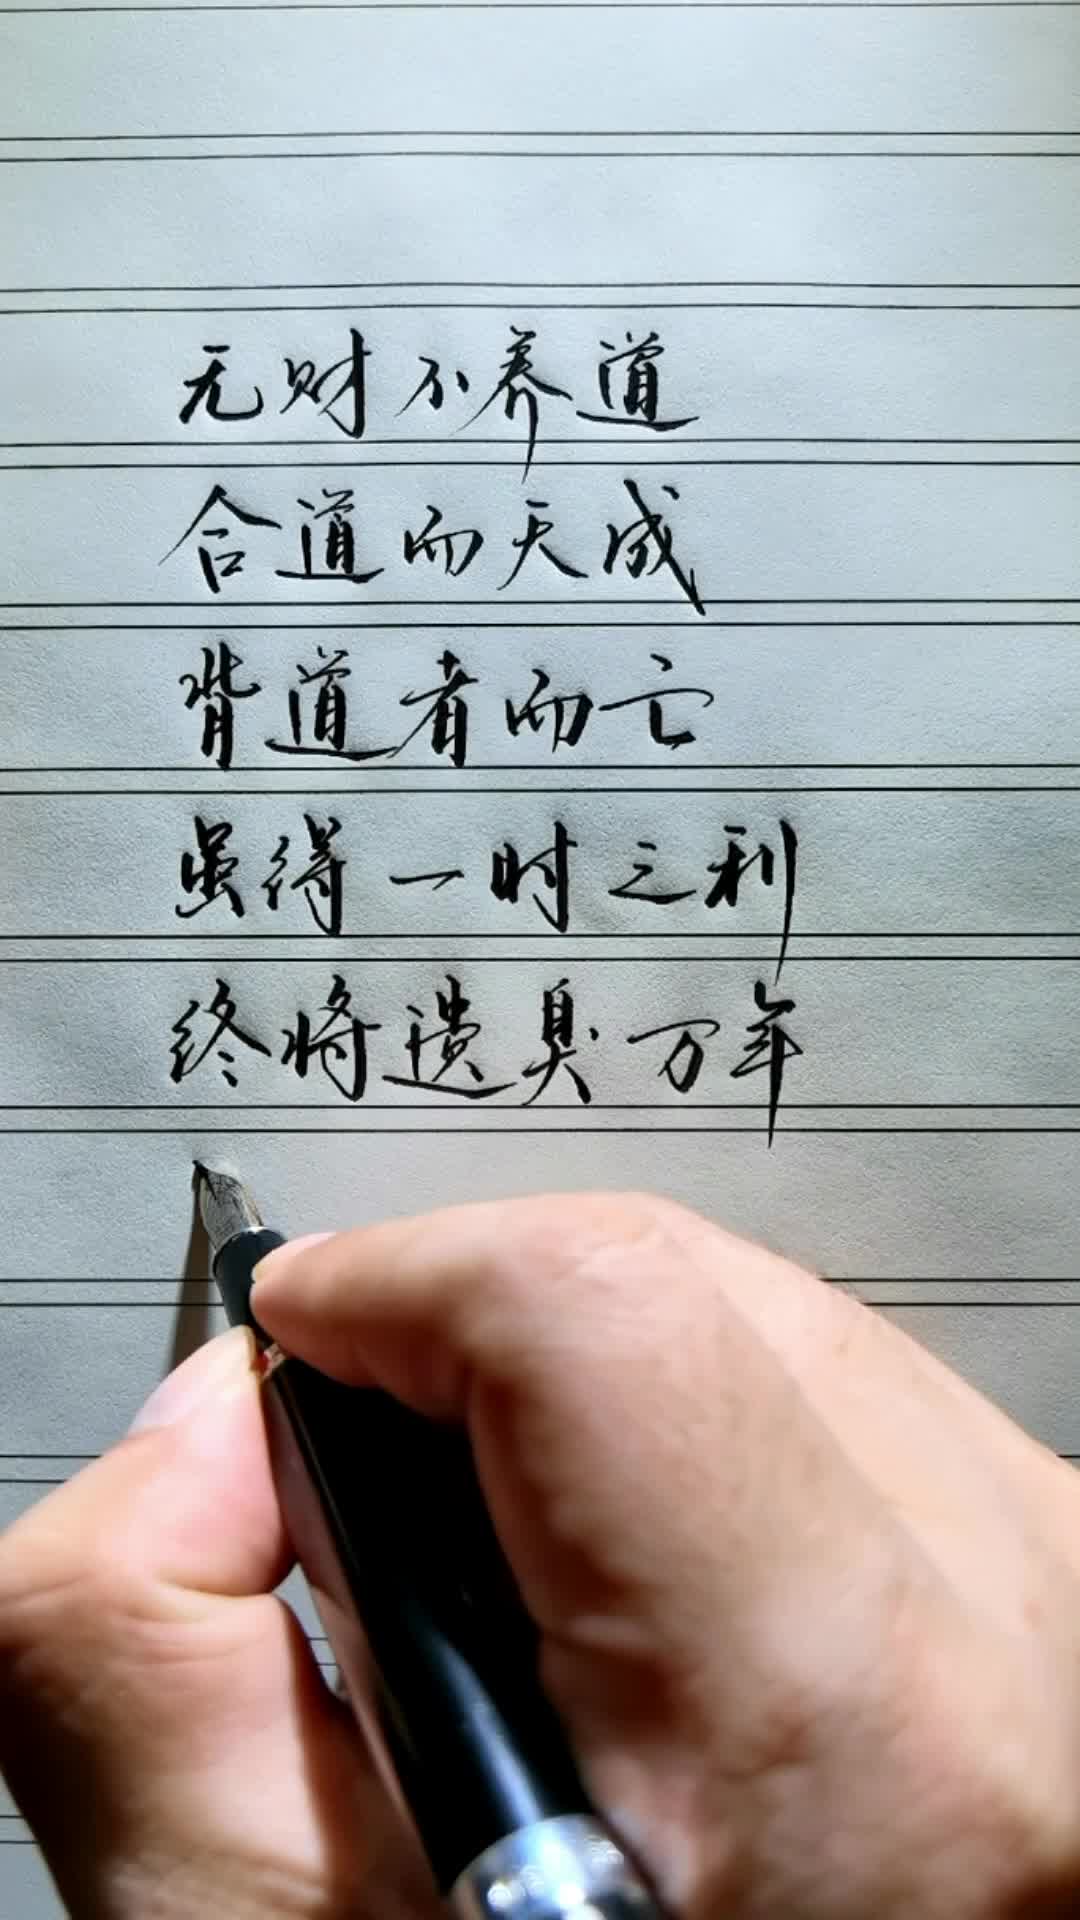 无财不养道
合道而天成
背道者而亡
虽得一时之利
终将遗臭万年